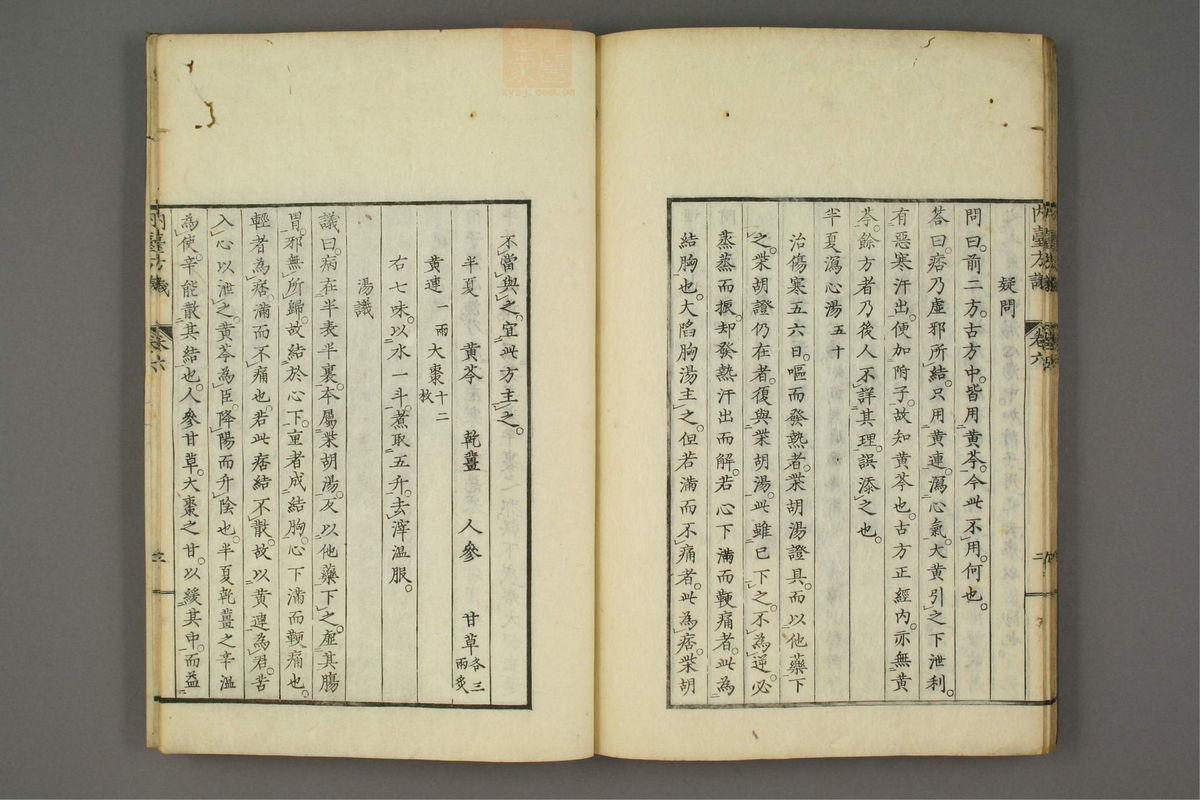 疑問
問曰。前二方。古方中。皆用黃芩。今此不用。何也。
荅曰。痞乃虛邪所結。只用黃連。瀉心氣。大黃引之下泄利。
有惡寒汗出。便加附子。故知黃芩也。古方正經內。亦無黃
芩。餘方者乃後人不詳其理。誤添之也。
半夏瀉心湯 五十
治傷寒五六日。嘔而發熱者。柴胡湯證具。而以他藥下
之。柴胡證仍在者。復與柴胡湯。此雖已下之。不為逆。必
蒸蒸而振。却發熱汗出而解。若心下滿而鞕痛者。此為
結胸也。大陷胸湯主之。但若滿而不痛者。此為痞。柴胡
不當與之。宜此方主之。
半夏 黃芩 乾薑 人參 甘草各三兩炙
黃連一兩 大棗十二枚
右七味。以水一斗。煮取五升。去滓溫服。
湯議
議曰。病在半表半裏。本屬柴胡湯。反以他藥下之。虛其腸
胃。邪無所歸。故結於心下。重者成結胸。心下滿而鞕痛也。
輕者為痞。滿而不痛也。若此痞結不散。故以黃連為君。苦
入心以泄之。黃芩為臣。降陽而升陰也。半夏乾薑之辛溫
為使。辛能散其結也。人參甘草大棗之甘。以緩其中。而益
內臺方議 卷六 三